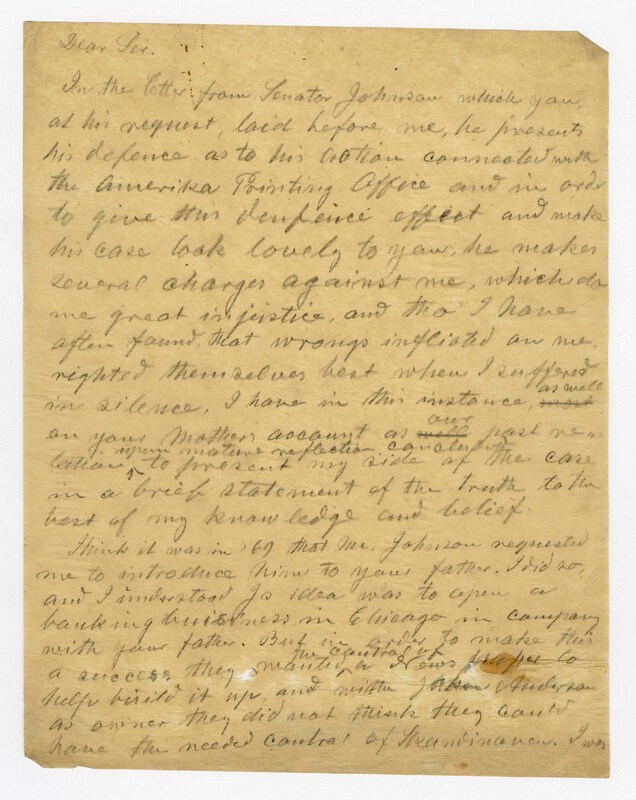 Dear Sir.
In the letter from Senator Johnson which you,
at his request, laid before me, he presents
his defence as to his action connected with
the Amerika Printing Office and in order
to give this denfence effect and make
his case look lovely to you, he makes
several charges against me, which do
me great injustice, and tho I have
often found, that wrongs inflicted on me,
righted themselves best when I suffered
in silence, I have in this instance, as well
on your Mothers account as our past re-
lation upon mature reflection concluded to present my side of the case
in a brief statement of the truth to the
best of my knowledge and belief.
I think it was in 69 that Mr. Johnson requested
me to introduce him to your father. I did so,
and I understood Js idea was to open a
banking buisness in Chicago in company
with your father. But in order to make this
a success they wanted the control of a News paper to
help build it up, and with John Anderson
as owner they did not think they could
have the needed control of Skandinaven. I was